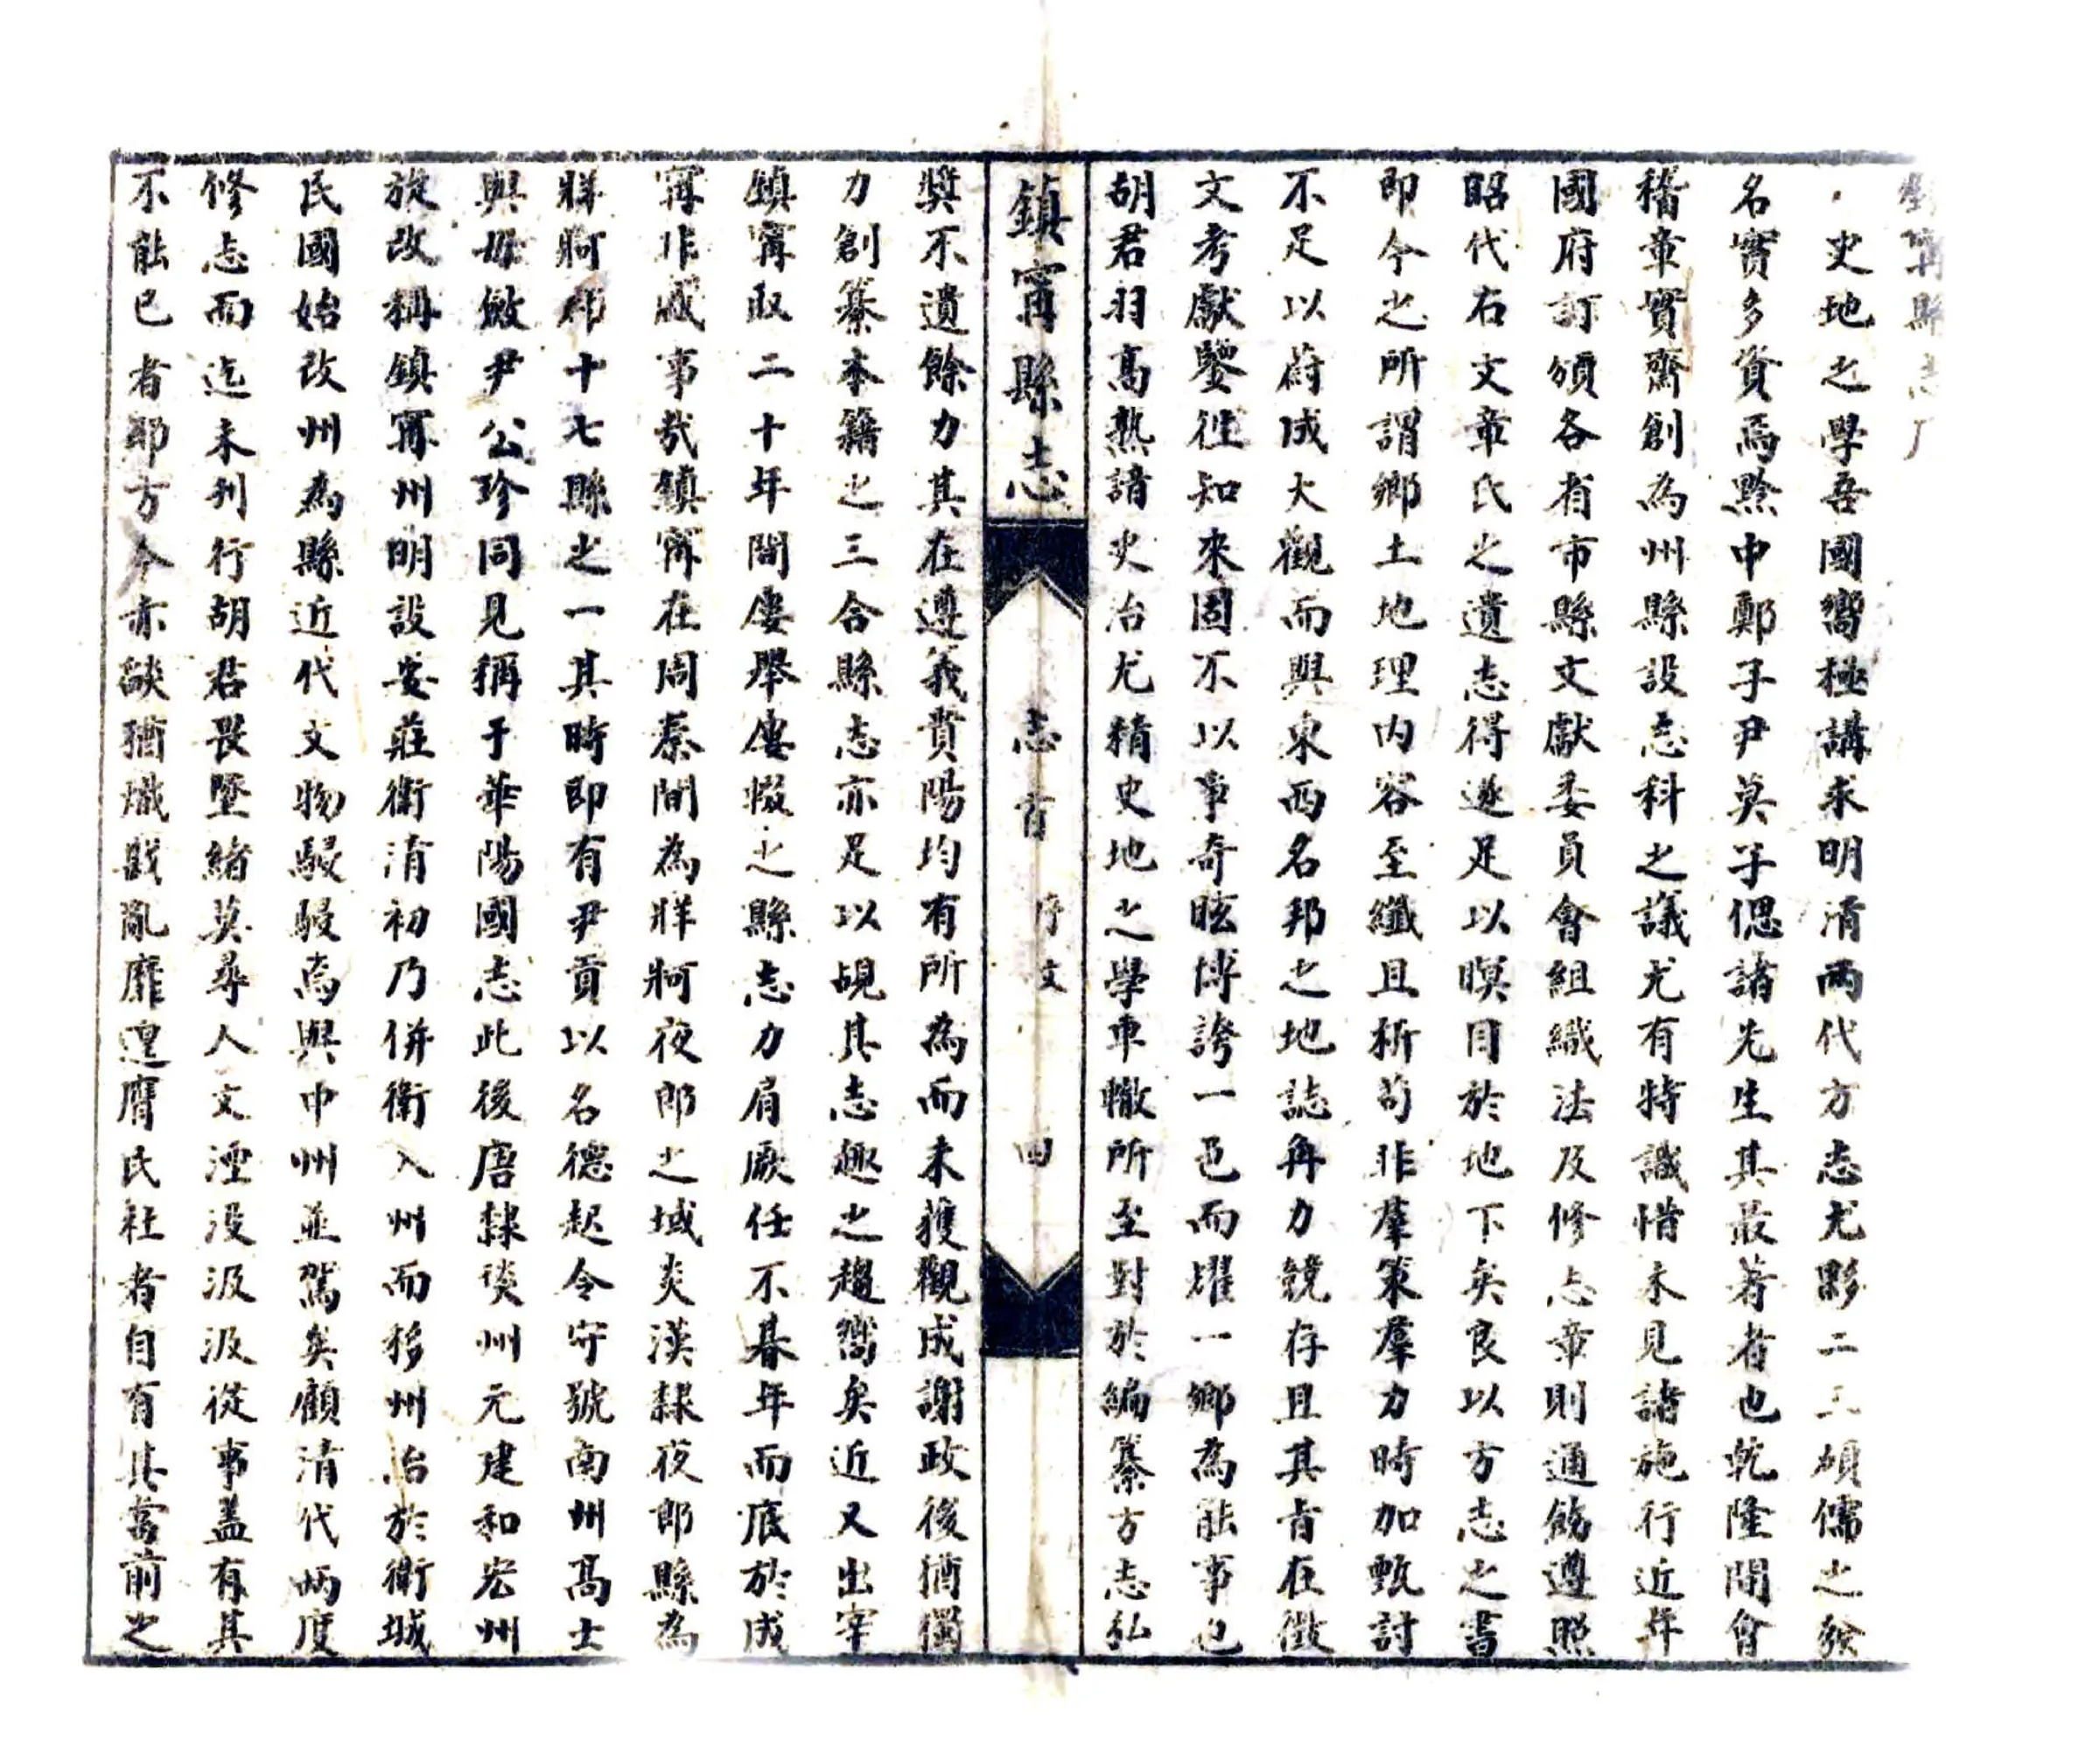 鎮甯縣志
史地之學吾國嚮極講求明清兩代方志尤夥二三碩儒之發
名實多資焉黔中鄭子尹莫子偲諸先生其最著者也乾隆間會
稽章實齋創為州縣設志科之議尤有特識惜未見諸施行近年
國府訂頒各省市縣文獻委員會組織法及修志章則通飭遵照
昭代右文章氏之遺志得遂足以瞑目於地下矣良以方志之書
即今之所謂鄉土地理内容至纖且析苟非羣策羣力時加甄討
不足以蔚成大觀而與東西名邦之地誌角力競存且其旨在徵
文考獻鑒往知來固不以事奇眩博誇一邑而燿一鄉為能事也
胡君羽高熟諸史治尤精史地之學車轍所至對於編纂方志弘
鎮甯縣志
志首
序文
四
奬不遺餘力其在遵義貴陽均有所為而未獲觀成謝政後猶獨
力創纂本籍之三合縣志亦足以覘其志趣之趨嚮矣近又出宰
鎮甯取二十年間屢舉屢輟之縣志力肩厥任不朞年而底於成
甯非咸事哉鎮甯在周秦間為牂牁夜郎之域炎漢隸夜郎縣為
牂牁郡十七縣之一其時即有尹貢以名德起令守號南州高士
與毋斂尹公珍同見稱于華陽國志此後唐隸琰州元建和宏州
旋改稱鎮甯州明設安莊衛清初乃併衛入州而移州治於衛城
民國始改州為縣近代文物駸駸焉與中州並駕矣顧清代兩度
修志而迄未刋行胡君畏墜緒莫尋人文湮没汲汲從事蓋有其
不能已者耶方今赤燄猶熾戡亂靡遑膺民社者自有其當前之